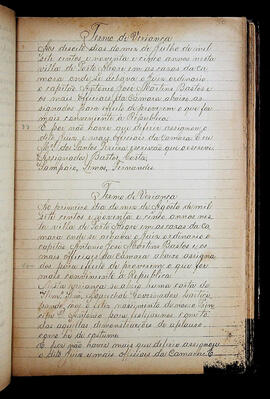 Termo de Veriança
Aos desoito dias do mez de Julho de mil
sete centos e noventa e cinco annos nesta
villa de Porto Alegre em as casas da ca
mara onde se achava o Juiz ordinario
o capitão Antonio José Martins Bastos e
os mais officiaes da Camara abaixo as
signados para efeito de proverem o que for
mais conveniente á Republica.
E por não haver que deferir assignou o
dito Juiz e mais officiaes da Camara. E eu
dos Santos Pereira escrivão que o escrevi.
Assignados Bastos, Costa,
Sampaio, Lemos, Fernandes.
Termo de Veriança
Ao primeiro dia do mez de Agosto de mil
sete centos e noventa e cinco annos nes
ta villa de Porto Alegre em as casas da ca
mara onde se achava o Juiz ordinario o
capitão Antonio José Martins Bastos e os
mais officiaes da Camara abaixo assigna
dos para efeito de proverem o que for
mais conveniente á Republica.
Nesta vereança se abrio huma carta do
Governador
pando, que o feliz nascimento do
Antonio para festejarmos com to
das aquellas demonstrações de aplauso
como he de costume.
E por não haver mais que deferir assignou
o dito Juiz e mais officiaes da Camara. E